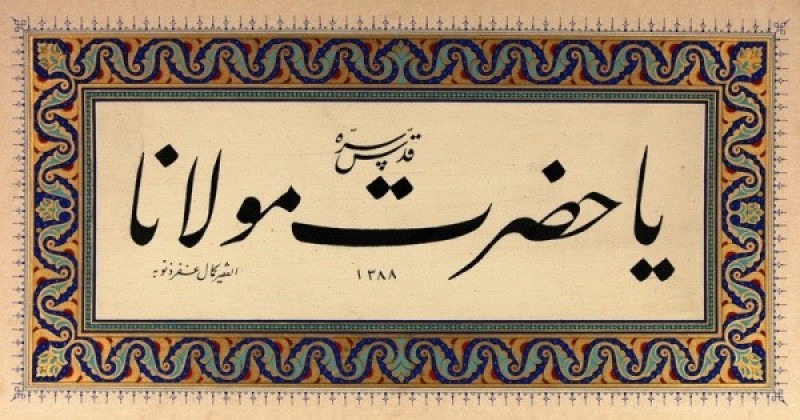 قدس سره
يا حضرت مولانا
١٣٨٨
الفقير كمال غفر ذنوبه